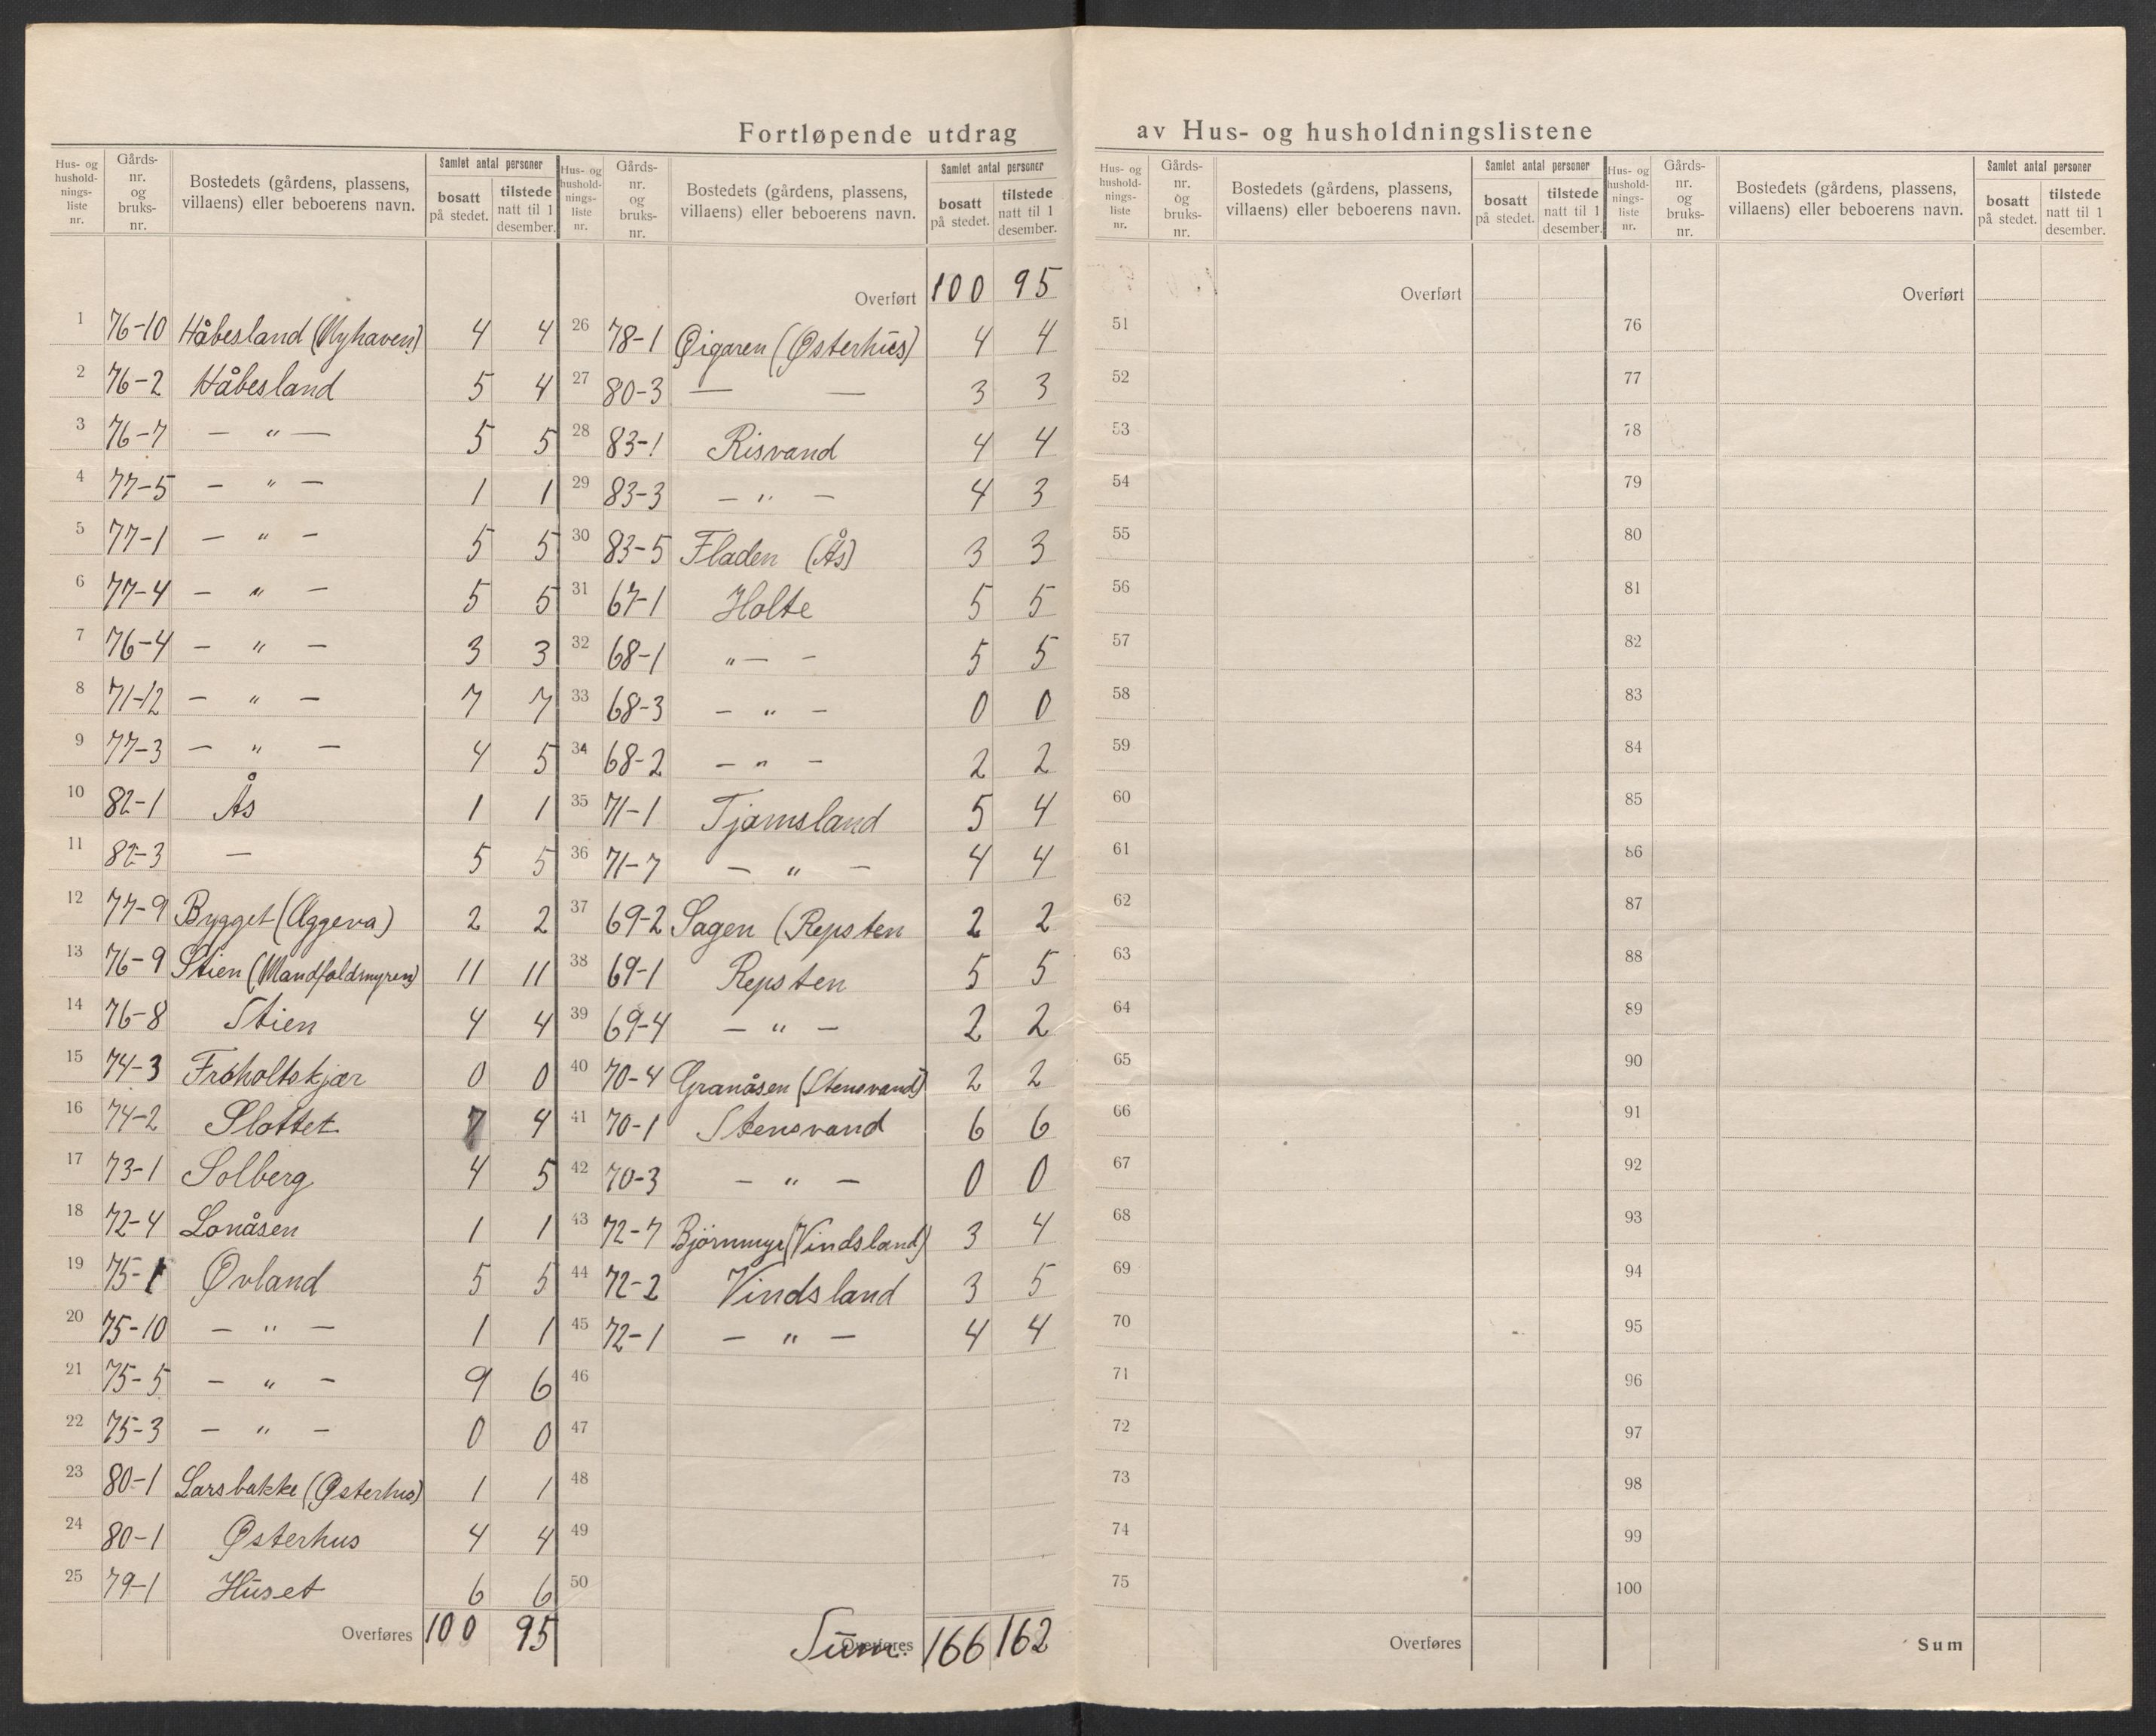 Fortløpende utdrag av Hus- og husholdningslistene
Hus- og hushold-nings-liste nr. | Gårds-nr. og bruks-nr. | Bostedets (gårdens, plassens, villaens) eller beboerens navn. | Samlet antal personer | bosatt på stedet. | tilstede natt til 1 desember.
1 76-10 Håbesland (Nyhaven) 4 4
2 76-2 Håbesland 5 4
3 76-7 — " — 5 5
4 77-5 — " — 1 1
5 77-1 — " — 5 5
6 77-4 — " — 5 5
7 76-4 — " — 3 3
8 71-12 — " — 7 7
9 77-3 — " — 4 5
10 82-1 Ås 1 1
11 82-3 — 5 5
12 77-9 Bygget (Aggeva) 2 2
13 76-9 Stien (Mandfoldmyren) 11 11
14 76-8 Stien 4 4
15 74-3 Froholtskjær 0 0
16 74-2 Slottet 7 4
17 73-1 Solberg 4 5
18 72-4 Lonåsen 1 1
19 75-1 Øvland 5 5
20 75-10 — " — 1 1
21 75-5 — " — 9 6
22 75-3 — " — 0 0
23 80-1 Larsbakke (Østerhus) 1 1
24 80-1 Østerhus 4 4
25 79-1 Huset 6 6
Overføres 100 95
Hus- og hushold-nings-liste nr. | Gårds-nr. og bruks-nr. | Bostedets (gårdens, plassens, villaens) eller beboerens navn. | Samlet antal personer | bosatt på stedet. | tilstede natt til 1 desember.
Overført 100 95
26 78-1 Øigaren (Østerhus) 4 4
27 80-3 — — 3 3
28 83-1 Risvand 4 4
29 83-3 — " — 4 3
30 83-5 Fladen (Ås) 3 3
31 67-1 Holte 5 5
32 68-1 " — — 5 5
33 68-3 — " — 0 0
34 68-2 — " — 2 2
35 71-1 Tjomsland 5 4
36 71-7 — " — 4 4
37 69-2 Sagen (Repsten 2 2
38 69-1 Repsten 5 5
39 69-4 — " — 2 2
40 70-4 Granåsen (Stensvand) 2 2
41 70-1 Stensvand 6 6
42 70-3 — " — 0 0
43 72-7 Björnmyr (Vindsland) 3 4
44 72-2 Vindsland 3 5
45 72-1 — " — 4 4
46
47
48
49
50
Overføres Sum. 166 162
Hus- og hushold-nings-liste nr. | Gårds-nr. og bruks-nr. | Bostedets (gårdens, plassens, villaens) eller beboerens navn. | Samlet antal personer | bosatt på stedet. | tilstede natt til 1 desember.
Overført
51
52
53
54
55
56
57
58
59
60
61
62
63
64
65
66
67
68
69
70
71
72
73
74
75
Overføres
Hus- og hushold-nings-liste nr. | Gårds-nr. og bruks-nr. | Bostedets (gårdens, plassens, villaens) eller beboerens navn. | Samlet antal personer | bosatt på stedet. | tilstede natt til 1 desember.
Overført
76
77
78
79
80
81
82
83
84
85
86
87
88
89
90
91
92
93
94
95
96
97
98
99
100
Sum